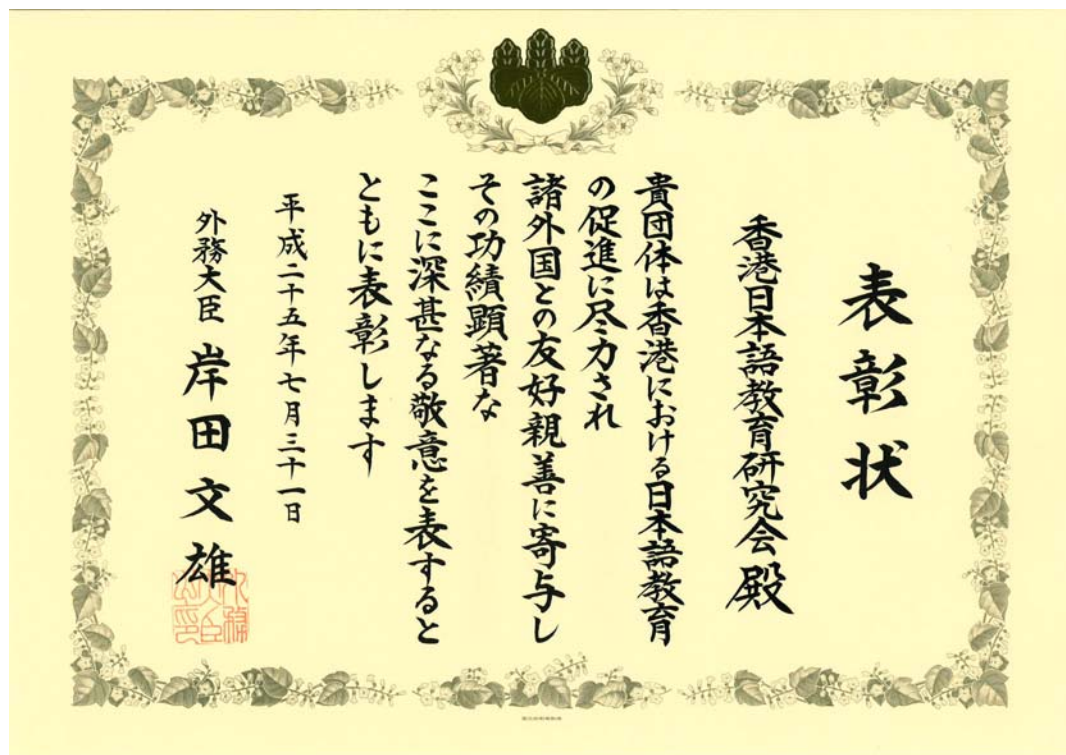 表彰状
香港日本語教育研究会殿
貴団体は香港における日本語教育
の促進に尽力され
諸外国との友好親善に寄与し
その功績顕著な
ここに深甚なる敬意を表すると
ともに表彰します
平成二十五年七月三十一日
外務大臣 岸田文雄